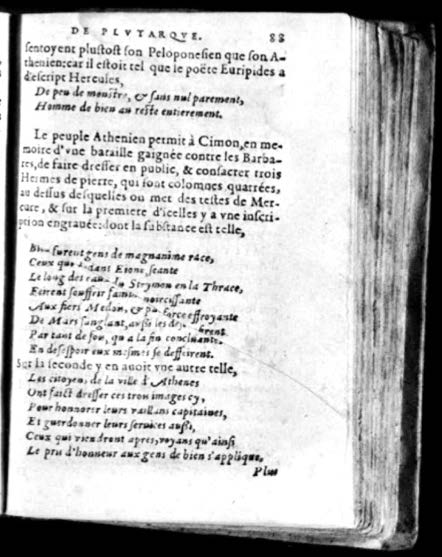 DE PLVTARQVE. 88
sentoyent plustost son Peloponesien que son A-
thenien: car il estoit tel que le poëte Euripides a
descript Hercules,
De peu de monstre, & sans nul parement,
Homme de bien au reste entierement.
Le peuple Athenien permit à Cimon, en me-
moire d'vne bataille gaignée contre les Barba-
res, de faire dresser en public, & consacrer trois
Hermes de pierre, qui sont colomnes quarrées,
au dessus desquelles on met des testes de Mer-
cure, & sur la premiere d'icelles y a vne inscri-
ption engrauée: dont la substance est telle,
furent gens de magnanime race,
Ceux qui dedans Eione seante
Le long des eaux du Strymon en la Thrace,
Feirent souffrir noircissante
Aux fiers Medois, & force effroyante
De Mars sanglant, aussi les
Par tant de fois, qu'a la fin concluante
En desespoir eux mesmes se deffeirent.
Sur la seconde y en auoit vne autre telle,
Les citoyens de la ville d'Athenes
Ont faict dresser ces trois images cy,
Pour honnorer leurs vaillans capitaines,
Et guerdonner leurs seruices aussi,
Ceux qui viendront apres, voyans qu'ainsi
Le pris d'honneur aux gens de bien s'applique,
Plus